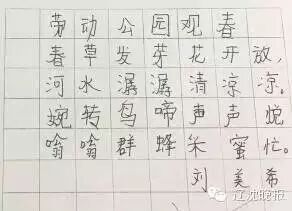 劳动公园观春
春草发芽花开放,
河水潺潺清凉凉。
婉转鸟啼声声悦
嗡嗡群蜂采蜜忙。
刘美希
辽沈晚报